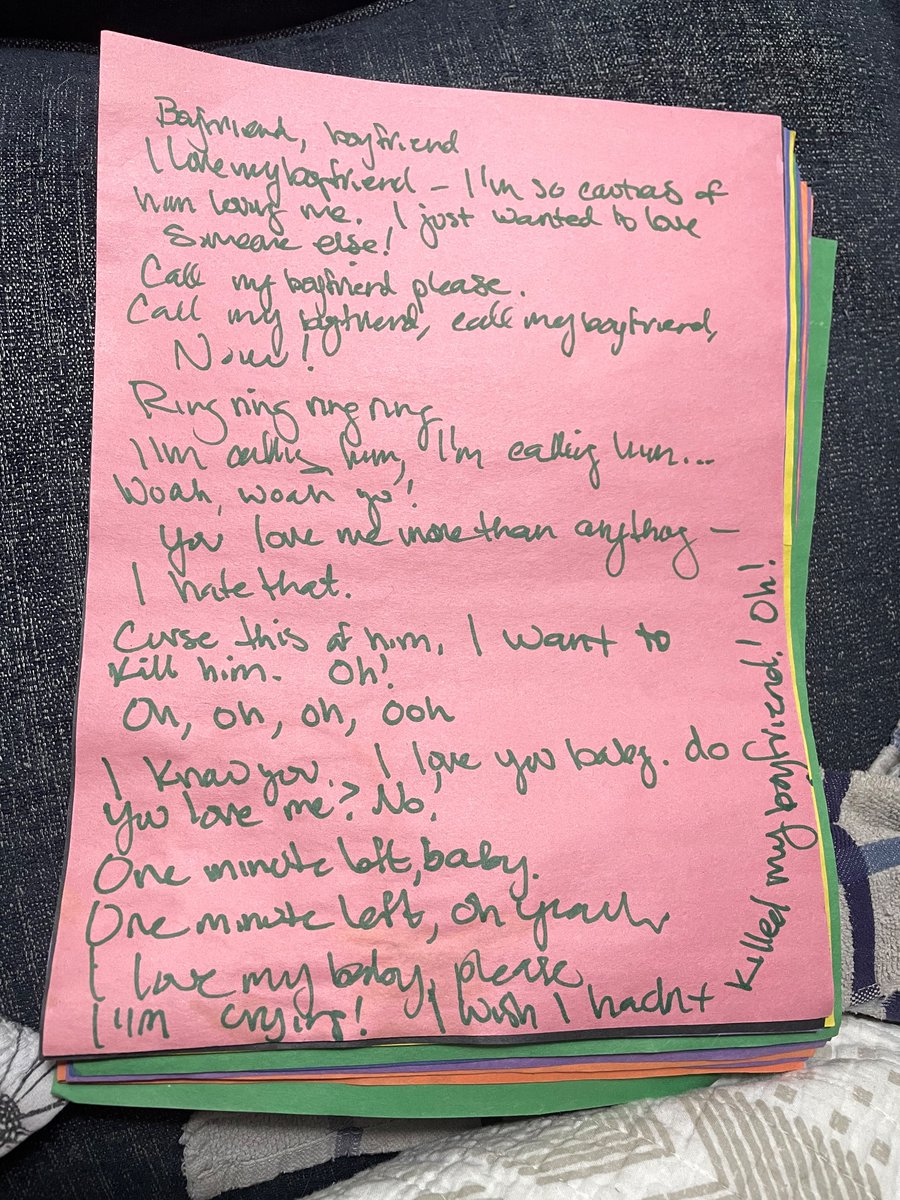 Boyfriend, boyfriend
I love my boyfriend – I'm so cautious of
him loving me. I just wanted to love
Someone else!
Call my boyfriend please.
Call my boyfriend, call my boyfriend,
Now!
Ring ring ring ring
I'm calling him, I'm calling him...
Woah, woah yo!
You love me more than anything –
I hate that.
Curse this of him, I want to
Kill him. Oh!
Oh, oh, oh, ooh
I know you. I love you baby. do
you love me? No,
One minute left, baby.
One minute left, oh yeah
I love my baby, please
I'm crying! I wish I hadn't
killed my boyfriend! Oh!